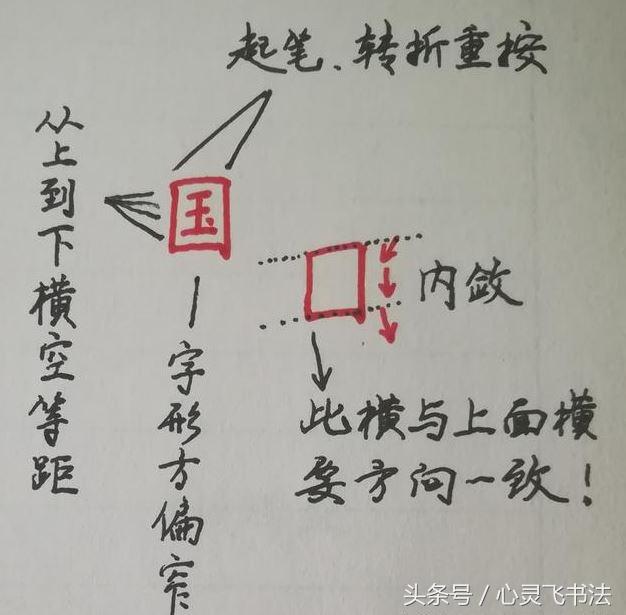 起笔、转折重按
从上到下横空等距
国
字形方偏窄
内敛
此横与上面横
要方向一致！
头条号／心灵飞书法